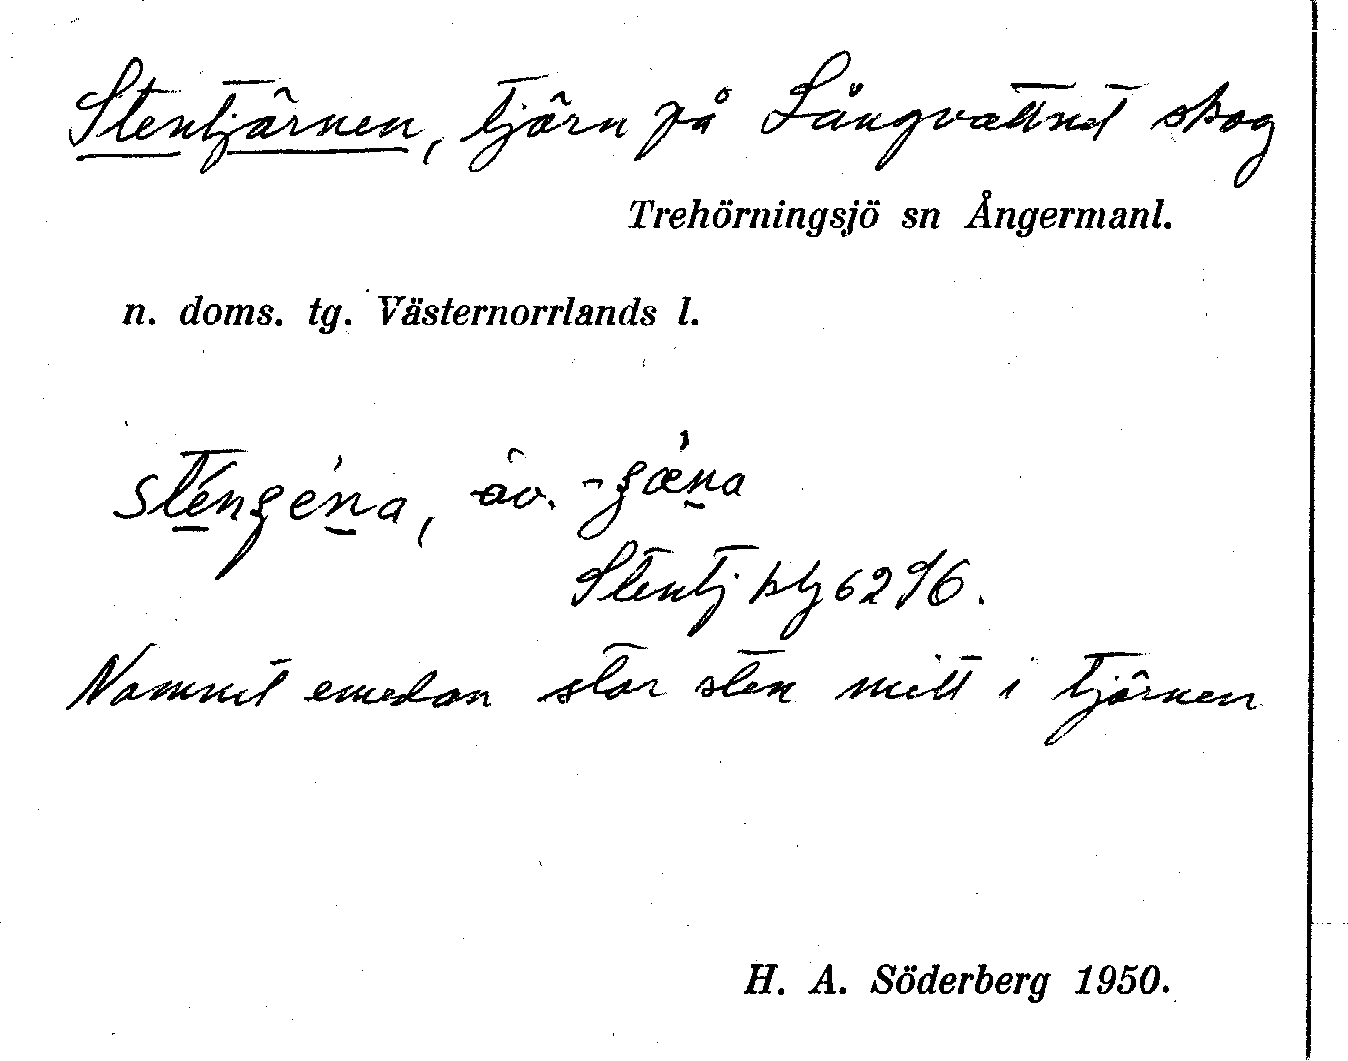 Stentjärnen, tjärn på Långvattnet skog
Trehörningsjö sn Ångermanl.
n. doms. tg. Västernorrlands l.
sténʒéna, äv. -ʒæ̀na
Stentj ktj 62 S6.
Namnet emedan stor sten mitt i tjärnen
H. A. Söderberg 1950.